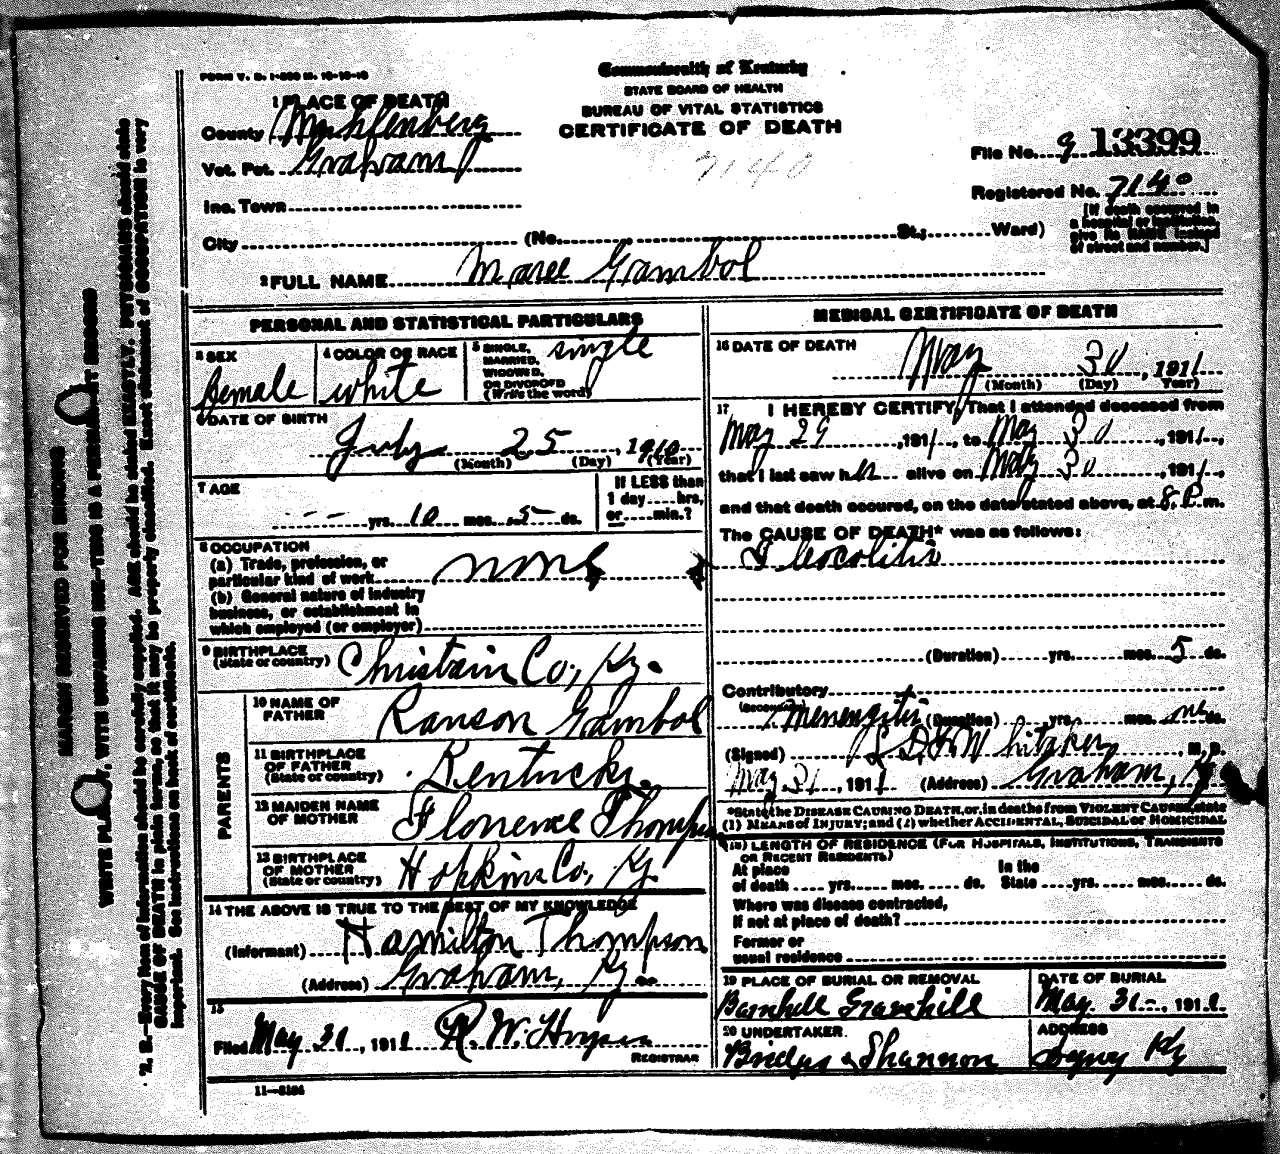 FORM V. S. 1-200 M. 10-10-10
Commonwealth of Kentucky
STATE BOARD OF HEALTH
BUREAU OF VITAL STATISTICS
CERTIFICATE OF DEATH
7140
1 PLACE OF DEATH
County Muhlenberg
Vot. Pct. Graham
Inc. Town
City (No. St.; Ward)
File No. 9 13399
Registered No. 7140
[If death occurred in
a hospital or institution,
give its NAME instead
of street and number.]
2 FULL NAME Maree Gambol
PERSONAL AND STATISTICAL PARTICULARS
3 SEX
Female
4 COLOR OR RACE
white
5 SINGLE,
MARRIED,
WIDOWED,
OR DIVORCED
(Write the word)
single
6 DATE OF BIRTH
July 25, 1910
(Month) (Day) (Year)
7 AGE
-- yrs. 10 mos. 5 ds.
If LESS than
1 day .... hrs,
or .... min.?
8 OCCUPATION
(a) Trade, profession, or
particular kind of work none
(b) General nature of industry
business, or establishment in
which employed (or employer)
9 BIRTHPLACE
(State or country)
Christain Co., Ky.
PARENTS
10 NAME OF
FATHER
Ranson Gambol
11 BIRTHPLACE
OF FATHER
(State or country)
Kentucky.
12 MAIDEN NAME
OF MOTHER
Florence Thompson
13 BIRTHPLACE
OF MOTHER
(State or country)
Hopkins Co., Ky.
14 THE ABOVE IS TRUE TO THE BEST OF MY KNOWLEDGE
(Informant) Hamilton Thompson
(Address) Graham, Ky.
15
Filed May 31, 1911 R. W.
REGISTRAR
11-3184
MEDICAL CERTIFICATE OF DEATH
16 DATE OF DEATH
May 30, 1911
(Month) (Day) Year)
17 I HEREBY CERTIFY, That I attended deceased from
May 29, 1911, to May 30, 1911,
that I last saw her alive on May 30, 1911,
and that death occured, on the date stated above, at 8. P. m.
The CAUSE OF DEATH* was as follows:
Ileocolitis
(Duration) yrs. mos. 5 ds.
Contributory
(SECONDARY)
Menengitis (Duration) yrs. mos. one ds.
(Signed) Whitaker, M. D.
May. 31, 1911 (Address) Graham, Ky
*State the DISEASE CAUSING DEATH, or, in deaths from VIOLENT CAUSES, state
(1) MEANS of INJURY; and (2) whether ACCIDENTAL, SUICIDAL or HOMICIDAL
(18) LENGTH OF RESIDENCE (FOR HOSPITALS, INSTITUTIONS, TRANSIENTS
OR RECENT RESIDENTS)
At place
of death .... yrs. mos. ds.
In the
State .... yrs. mos. ds.
Where was disease contracted,
If not at place of death?
Former or
usual residence
19 PLACE OF BURIAL OR REMOVAL
DATE OF BURIAL
May. 31-, 1911
20 UNDERTAKER
Bridges & Shannon
ADDRESS
Ky
MARGIN RESERVED FOR BINDING
WRITE PLAINLY, WITH UNFADING INK—THIS IS A PERMANENT RECORD
N. B.—Every item of information should be carefully supplied. AGE should be stated EXACTLY. PHYSICIANS should state
CAUSE OF DEATH in plain terms, so that it may be properly classified. Exact statement of OCCUPATION is very
important. See instructions on back of certificate.